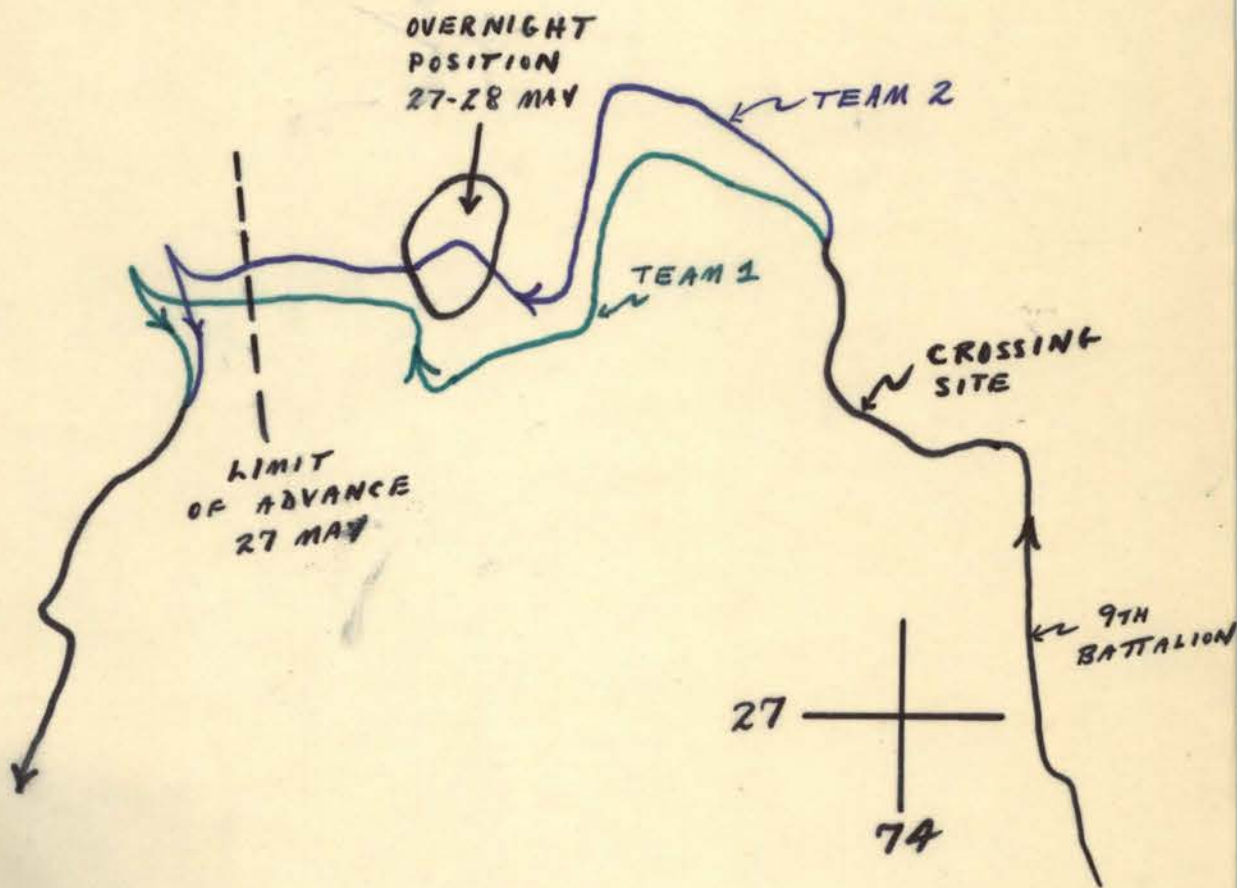 OVERNIGHT
POSITION
27-28 MAY
TEAM 2
TEAM 1
CROSSING
SITE
LIMIT
OF ADVANCE
27 MAY
9TH
BATTALION
27
74